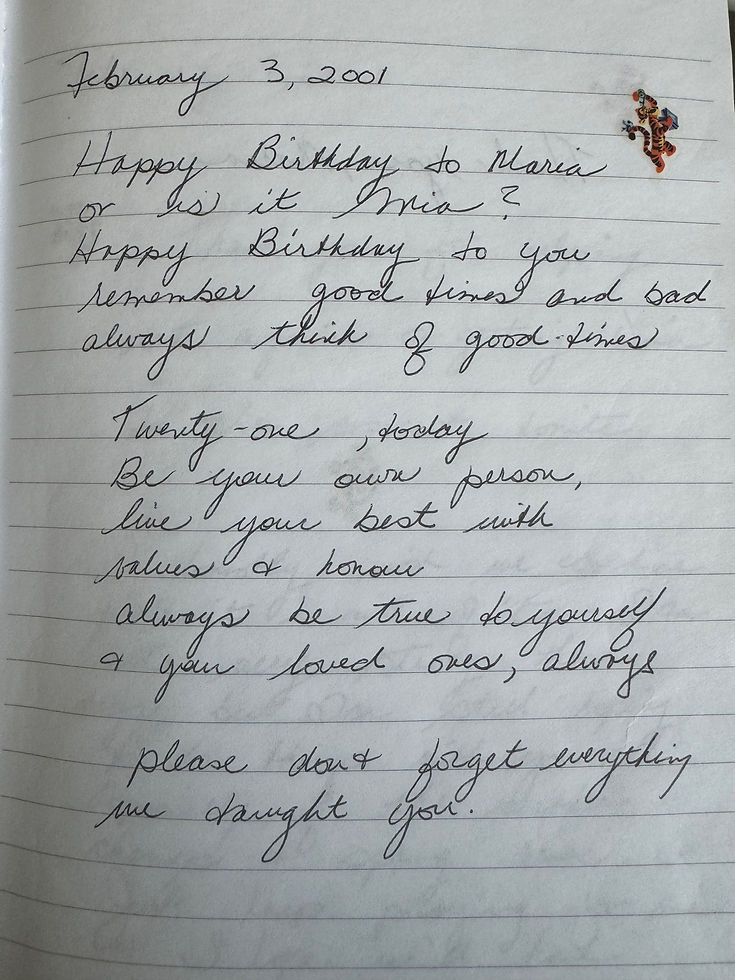 February 3, 2001
Happy Birthday to Maria
or is it Mia?
Happy Birthday to you
remember good times and bad
always think of good-times
Twenty-one, today
Be your own person,
live your best with
values & honour
always be true to yourself
& your loved ones, always
please don't forget everything
we taught you.